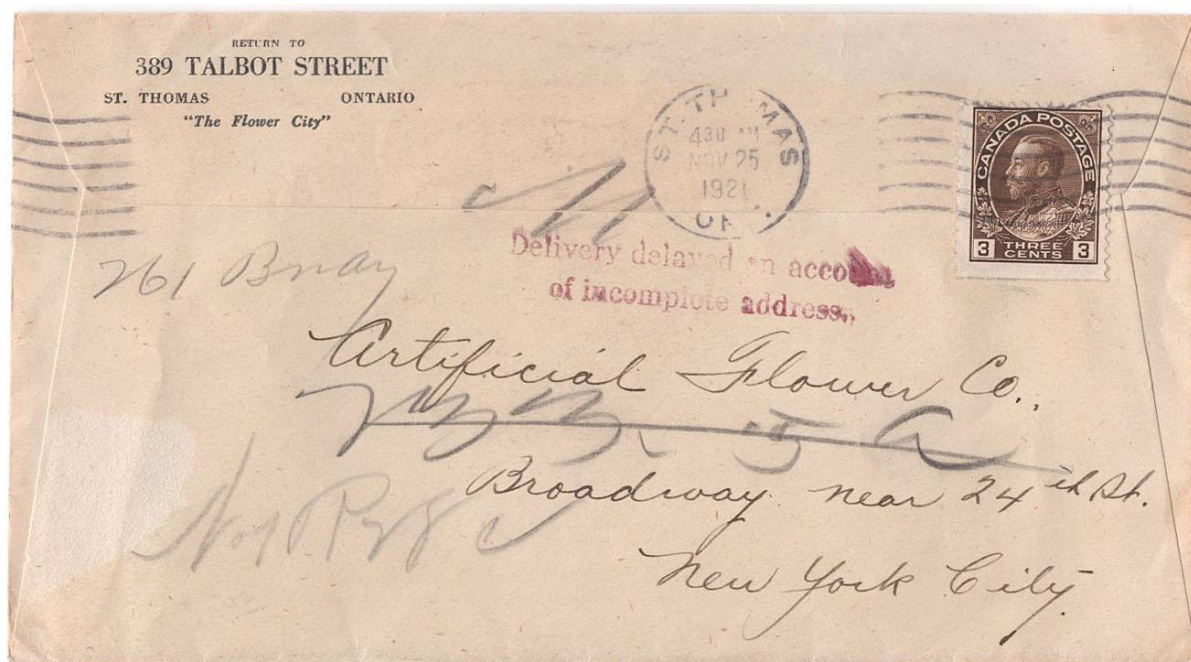 RETURN TO
389 TALBOT STREET
ST. THOMAS ONTARIO
"The Flower City"
ST. THOMAS
430 AM
NOV 25
1921
ONT.
CANADA POSTAGE
3 THREE CENTS 3
Delivery delayed on account
of incomplete address.
261 Bway
Artificial Flower Co.,
Broadway near 24th St.
New York City